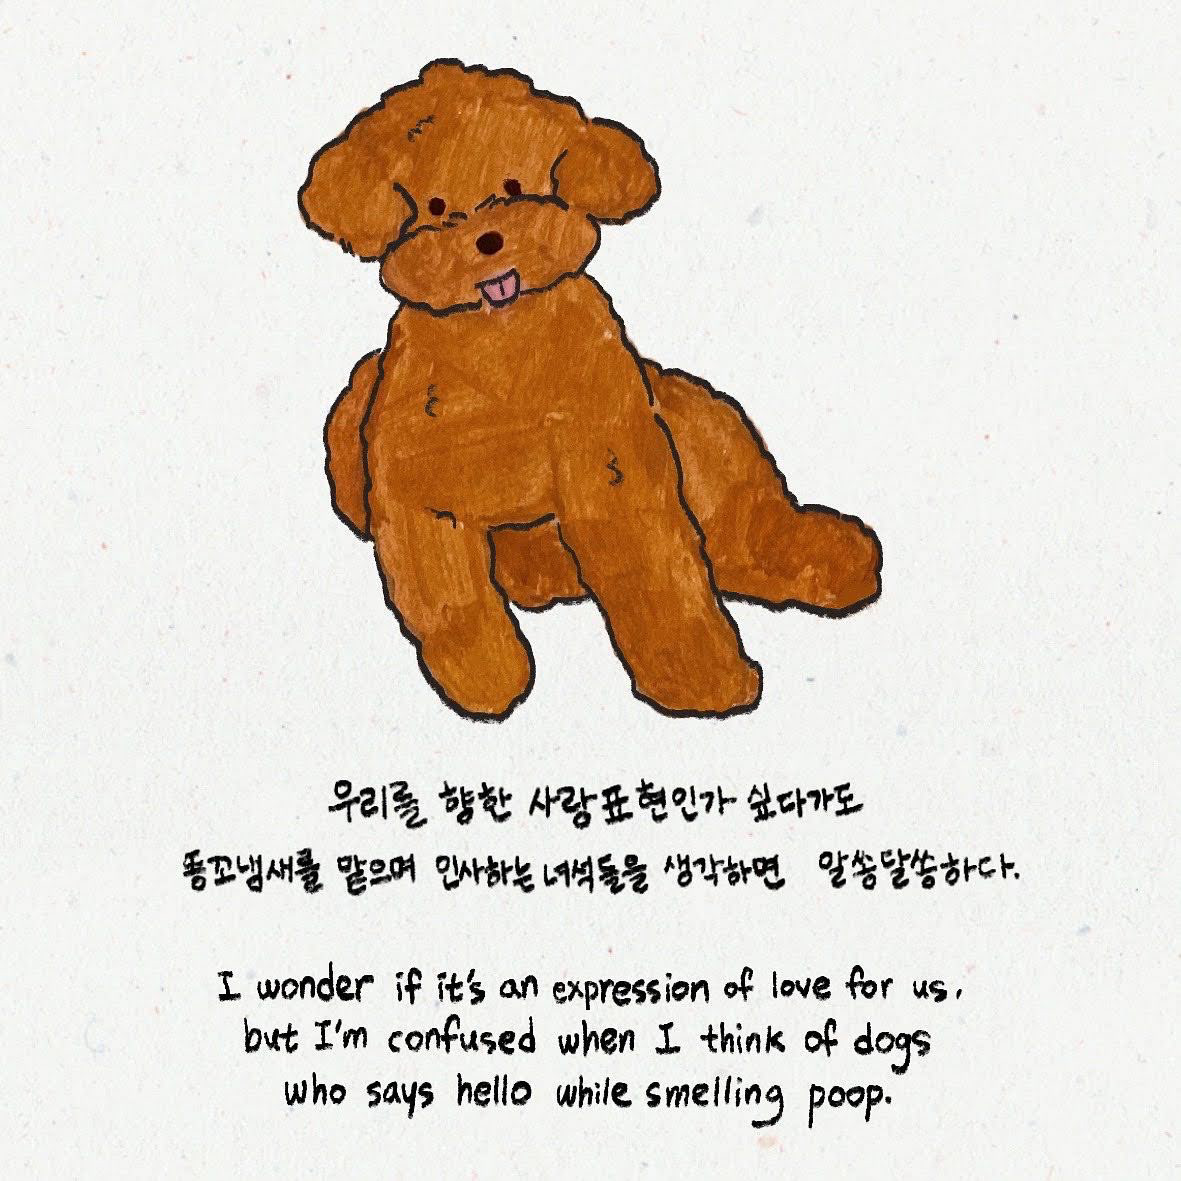 우리를 향한 사랑표현인가 싶다가도
똥꼬냄새를 맡으며 인사하는 녀석들을 생각하면 알쏭달쏭하다.
I wonder if it's an expression of love for us,
but I'm confused when I think of dogs
who says hello while smelling poop.